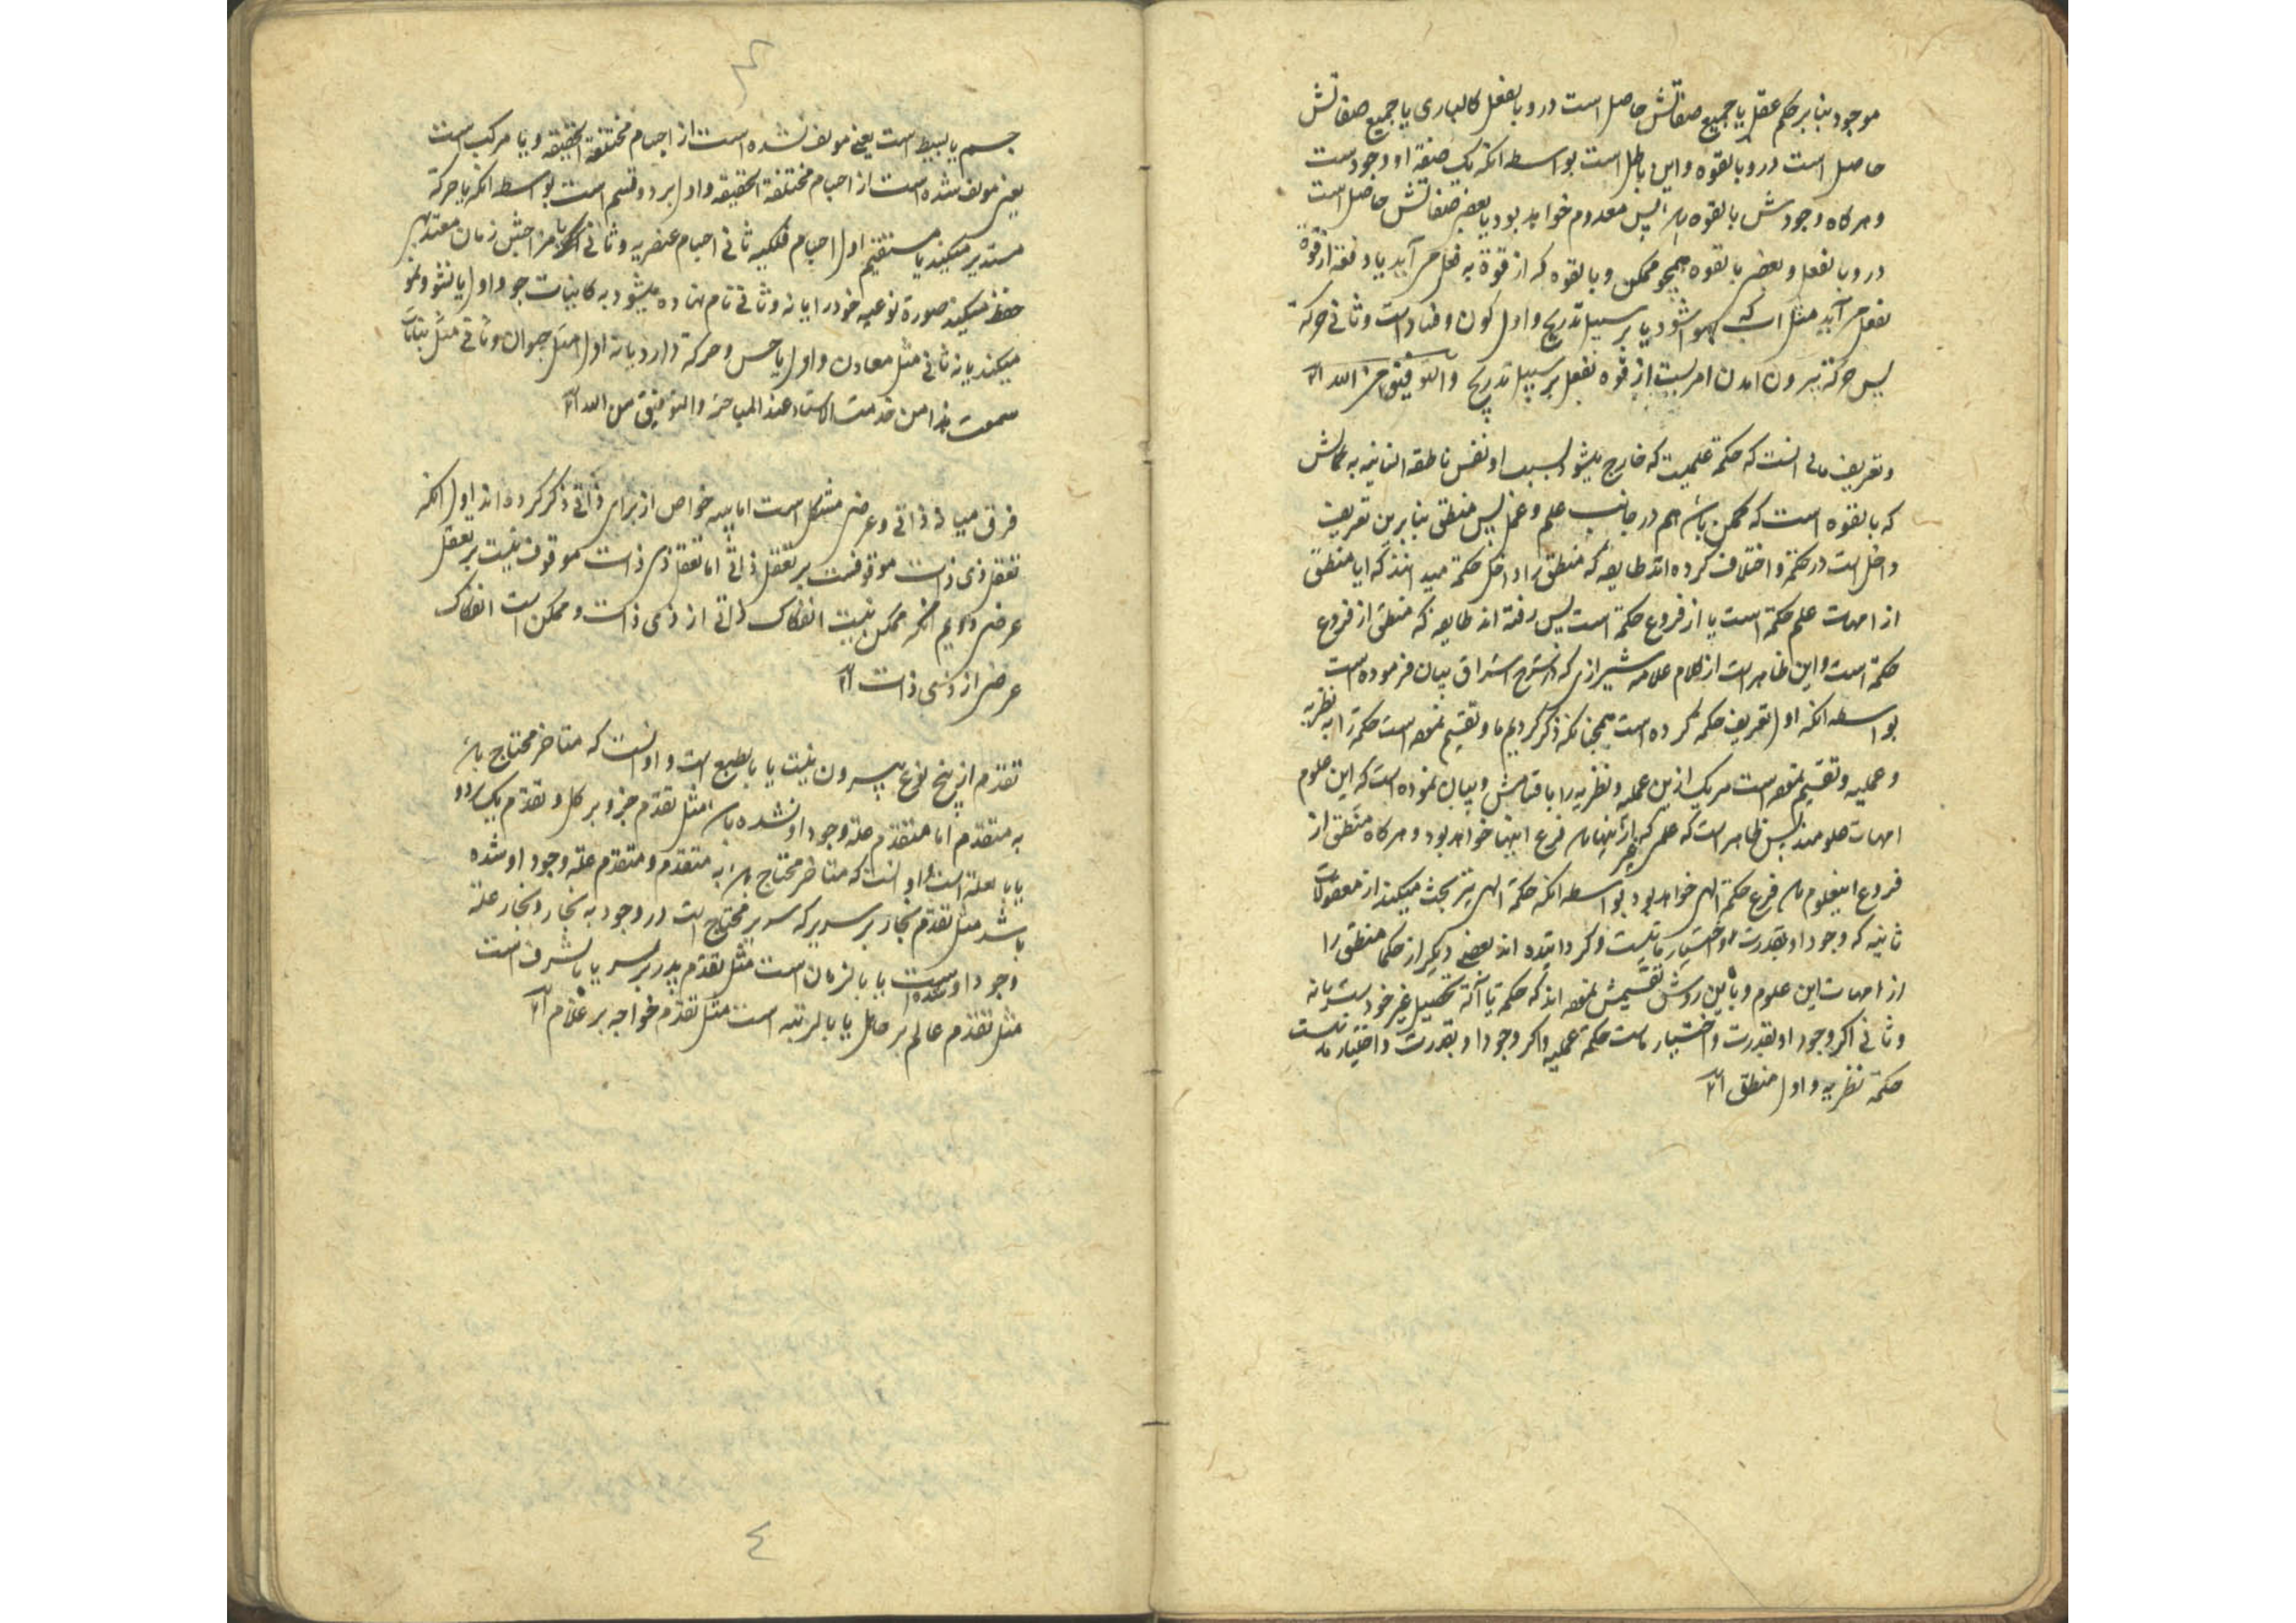 موجود بنا بر حکم عقل یا جمیع صفاتش حاصل است در و بالفعل کالباری یا جمیع صفاتش
حاصل است در و بالقوه و این باطل است بواسطه انکه یک صفة او وجودست
و هرگاه وجودش بالقوه باشد پس معدوم خواهد بود یا بعضی صفاتش حاصل است
در و بالفعل و بعضی بالقوه همچو ممکن و بالقوه که از قوة به فعل می آید یا دفعة از قوة
بفعل می آید مثل اب که هوا شود یا بر سبیل تدریج و اول کون و فساد است و ثانی حرکة
پس حرکة بیرون امدن امریست از قوه بفعل بر سبیل تدریج والتوفیق من الله
و تعریف انست که حکمة علمیست که خارج میشود بسبب او نفس ناطقه انسانیه به کمالش
که بالقوه است که ممکن باشد هم در جانب علم و عمل پس منطق بنا برین تعریف
داخل است در حکمة و اختلاف کرده اند طایفه که منطق را داخل حکمة میدانند که ایا منطق
از امهات علم حکمة است یا از فروع حکمة است پس رفته اند طایفه که منطق از فروع
حکمة است و این ظاهر است از کلام علامه شیرازی که در شرح اشراق بیان فرموده است
بواسطه انکه اول تعریف حکمة کرده است همچنانکه ذکر کردیم ما و تقسیم نموده است حکمة را به نظریه
و عملیه و تقسیم نموده است هر یک ازین عملیه و نظریه را باقسامش و بیان نموده است که این علوم
امهات علومند پس ظاهر است که علمی که غیر ازینها باشد فرع اینها خواهد بود و هرگاه منطق از
فروع اینعلوم باشد فرع حکمة الهی خواهد بود بواسطه انکه حکمة الهی نیز بحث میکند از معقولات
ثانیه که وجود او بقدرت و اختیار ما نیست و گردانیده اند بعضی دیگر از حکما منطق را
از امهات این علوم و باین روش تقسیمش نموده اند که حکمة یا آلة تحصیل غیر خود است یا نه
و ثانی اگر وجود او بقدرت و اختیار ماست حکمة عملیه و اگر وجود او بقدرت و اختیار ما نیست
حکمة نظریه و اول منطق
جسم یا بسیط است یعنی مولف نشده است از اجسام مختلفة الحقیقه و یا مرکب است
یعنی مولف شده است از اجسام مختلفة الحقیقه و اول بر دو قسم است بواسطه انکه یا حرکة
مستدیر میکند یا مستقیم اول اجسام فلکیه ثانی اجسام عنصریه و ثانی یا مزاجش زمان معتد به
حفظ میکند صورة نوعیه خود را یا نه و ثانی نام نهاده میشود به کاینات جو و اول یا نشو و نمو
میکند یا نه ثانی مثل معادن و اول یا حس و حرکة دارد یا نه اول مثل حیوان و ثانی مثل نباتات
سمعت هذا من خدمت الاستاد عند المباحثة والتوفیق من الله
فرق میان ذاتی و عرضی مشکل است اما سه خواص از برای ذاتی ذکر کرده اند اول انکه
تعقل ذی ذات موقوفست بر تعقل ذاتی اما تعقل ذی ذات موقوف نیست بر تعقل
عرضی دویم انکه ممکن نیست انفکاک ذاتی از ذی ذات و ممکن است انفکاک
عرضی از ذی ذات
تقدم از پنج نوع بیرون نیست یا بالطبع است و او انست که متاخر محتاج باشد
به متقدم اما متقدم علة وجود او نشده باشد مثل تقدم جزو بر کل و تقدم یک بر دو
یا بالعلة است و او انست که متاخر محتاج باشد به متقدم و متقدم علة وجود او شده
باشد مثل تقدم نجار بر سریر که سریر محتاج است در وجود به نجار و نجار علة
وجود او شده است یا بالزمان است مثل تقدم پدر بر پسر یا بالشرف است
مثل تقدم عالم بر جاهل یا بالرتبه است مثل تقدم خواجه بر غلام
٤